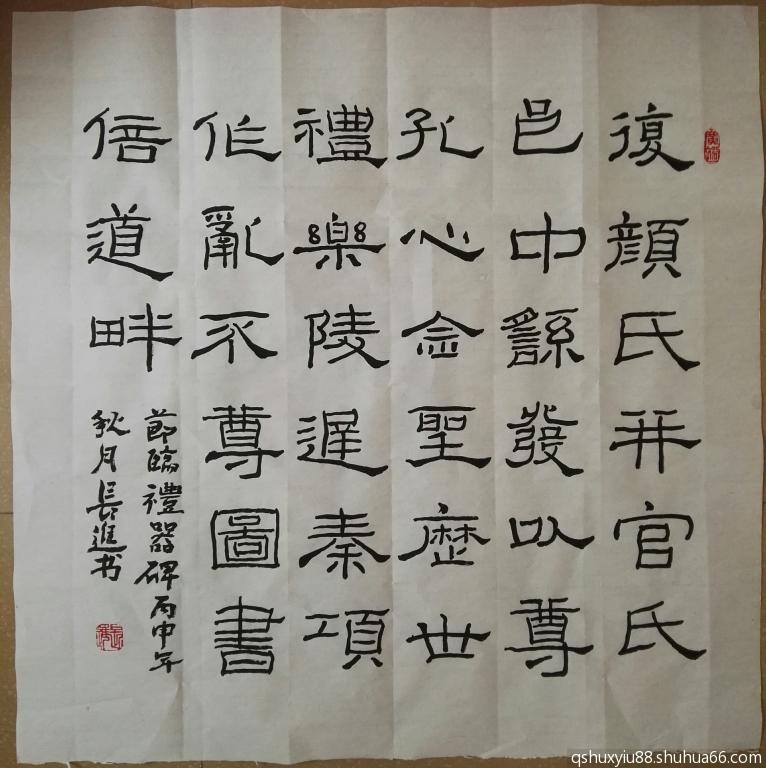 復顏氏并官氏
邑中繇發以尊
孔心念聖歷世
禮樂陵遲秦項
作亂不尊圖書
倍道畔
節臨禮器碑丙申年
秋月長進书
qshuxyiu88.shuhua66.com